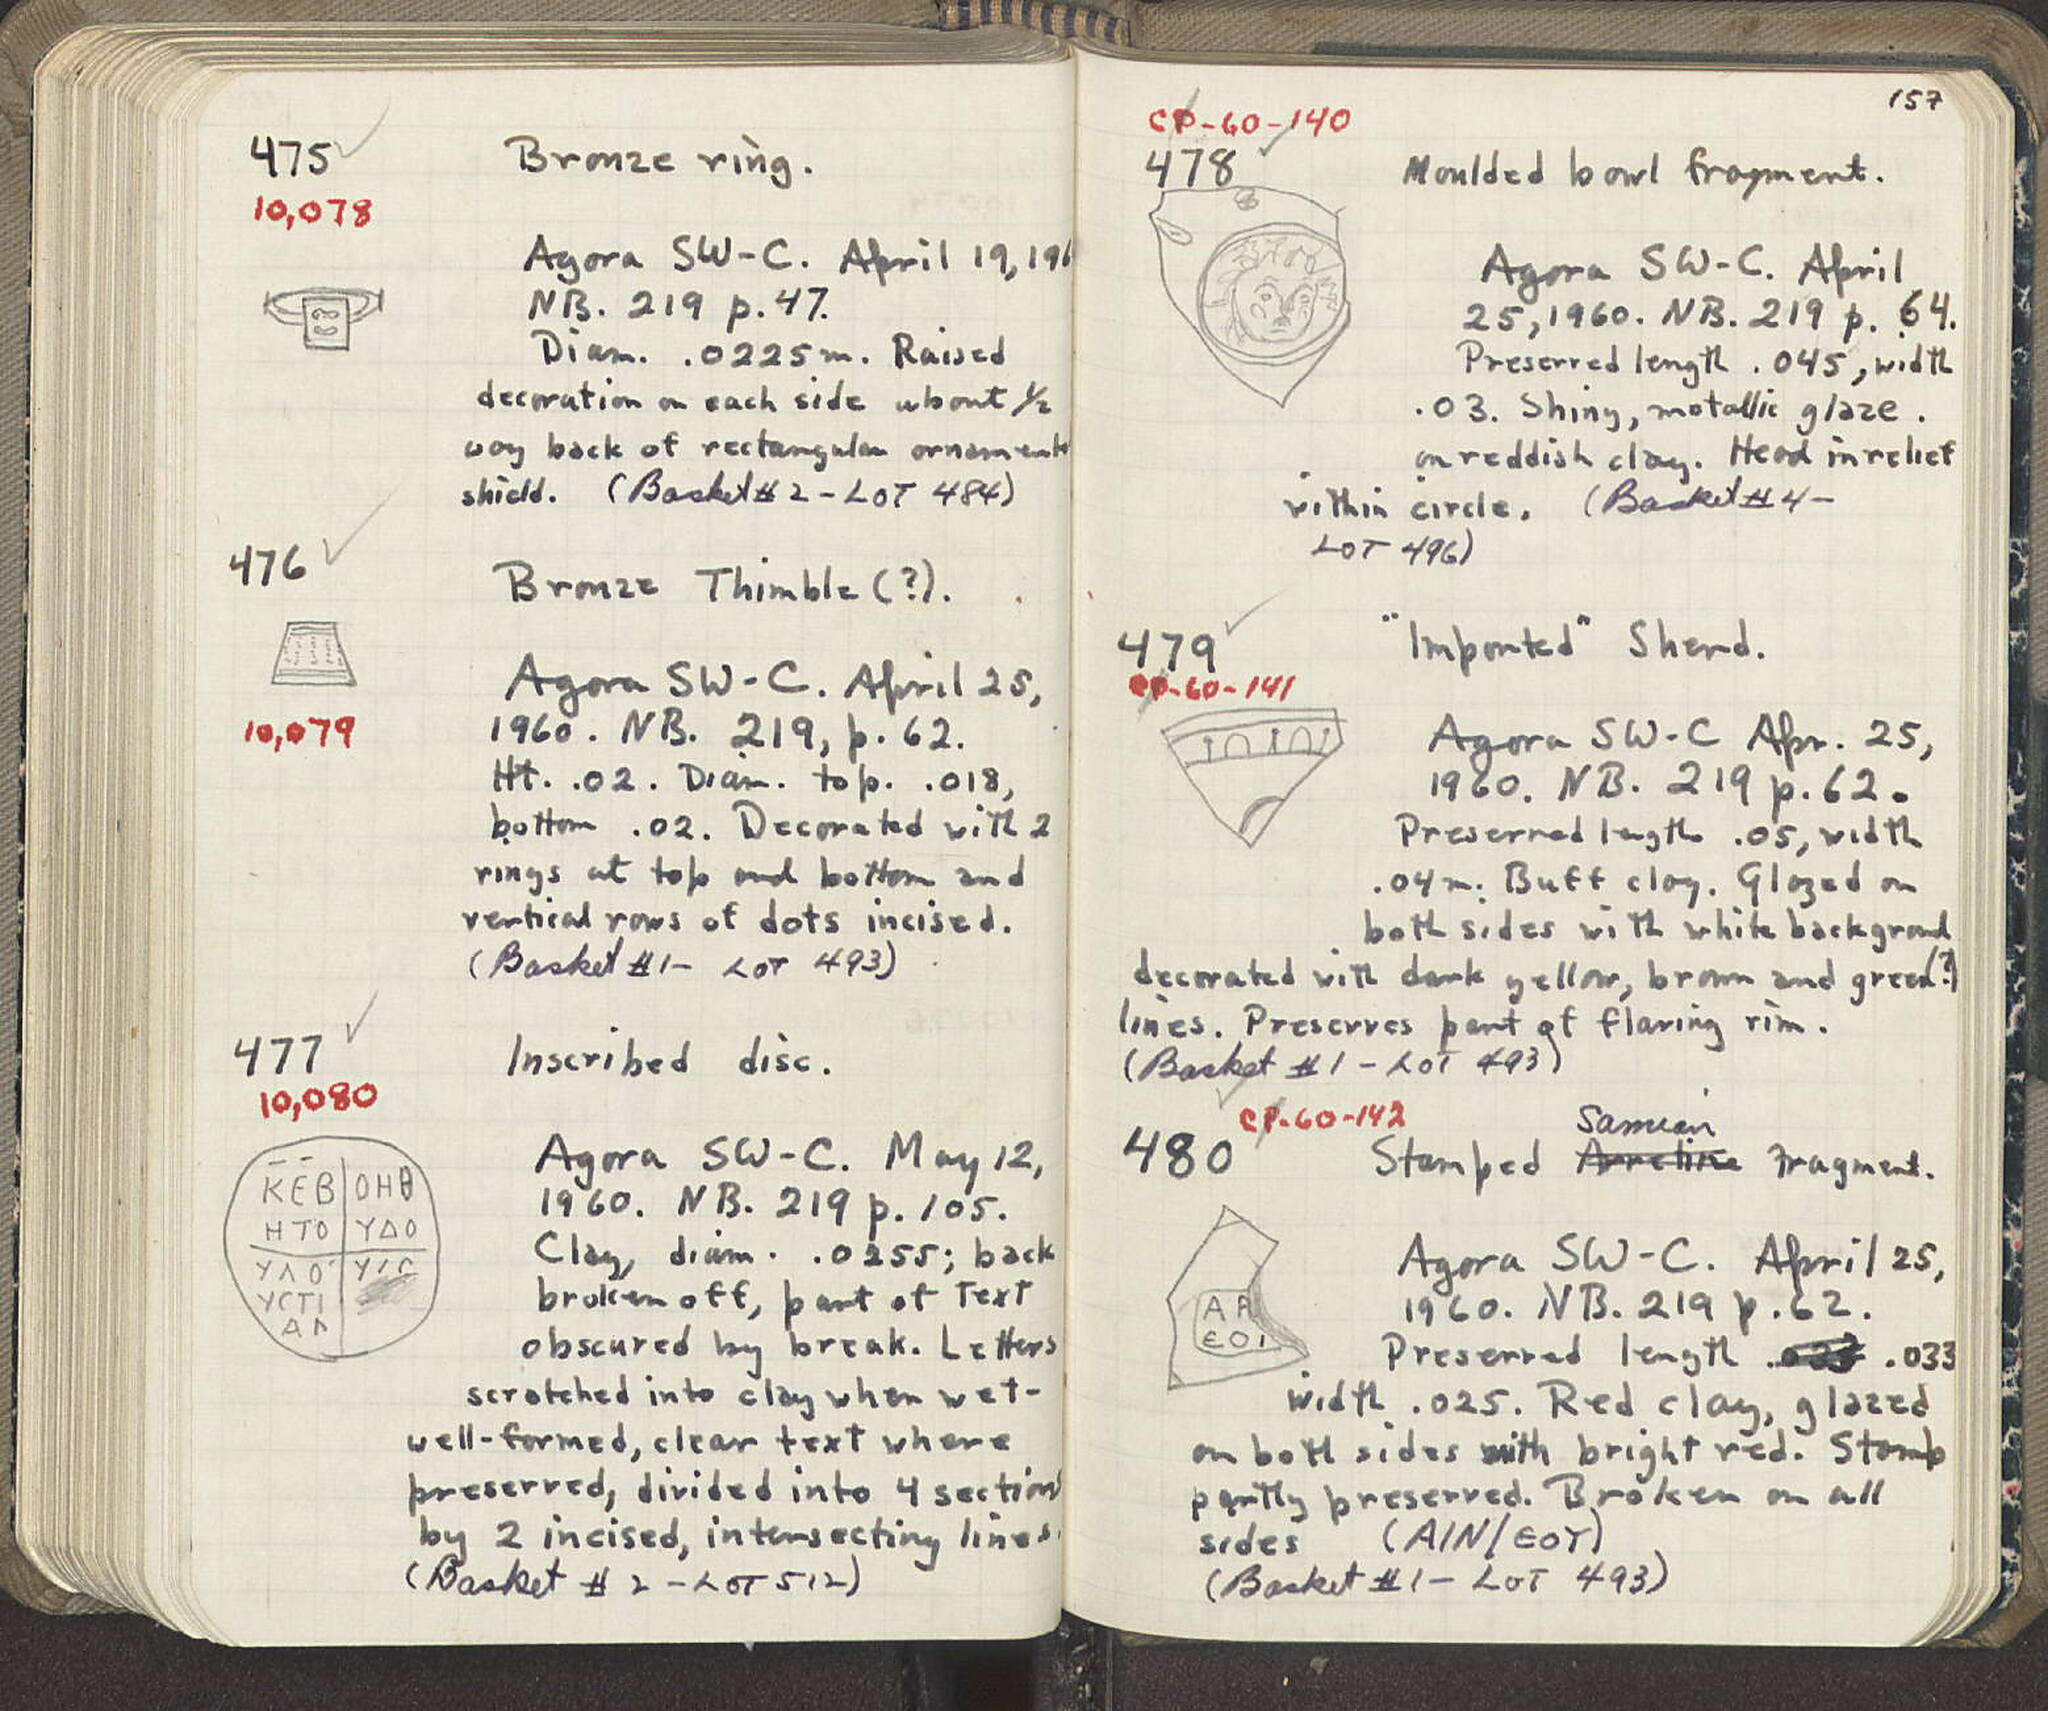 475
10,078
Bronze ring.
Agora SW-C. April 19, 196
NB. 219 p. 47.
Diam. .0225m. Raised
decoration on each side about 1/2
way back of rectangular ornament
shield. (Basket #2 - LOT 484)
476
10,079
Bronze Thimble (?).
Agora SW-C. April 25,
1960. NB. 219, p. 62.
Ht. .02. Diam. top. .018,
bottom .02. Decorated with 2
rings at top and bottom and
vertical rows of dots incised.
(Basket #1 - LOT 493)
477
10,080
Inscribed disc.
ΚΕΒ ΟΗΘ
ΗΤΟ ΥΔΟ
ΥΛΟ
ΥСΤΙ
ΑΛ
Agora SW-C. May 12,
1960. NB. 219 p. 105.
Clay, diam. .0255; back
broken off, part of text
obscured by break. Letters
scratched into clay when wet-
well-formed, clear text where
preserved, divided into 4 sections
by 2 incised, intersecting lines.
(Basket #2 - LOT 512)
157
CP-60-140
478
Moulded bowl fragment.
Agora SW-C. April
25, 1960. NB. 219 p. 64.
Preserved length .045, width
.03. Shiny, metallic glaze.
on reddish clay. Head in relief
within circle. (Basket #4 -
LOT 496)
479
CP-60-141
"Imported" Sherd.
Agora SW-C Apr. 25,
1960. NB. 219 p. 62.
Preserved length .05, width
.04m. Buff clay. Glazed on
both sides with white background
decorated with dark yellow, brown and green (?)
lines. Preserves part of flaring rim.
(Basket #1 - LOT 493)
CP-60-142
480
Samian
Stamped Arretine Fragment.
ΑΡ
ЄΟΙ
Agora SW-C. April 25,
1960. NB. 219 p. 62.
Preserved length .033
width .025. Red clay, glazed
on both sides with bright red. Stamp
partly preserved. Broken on all
sides (AIN/ЄOY)
(Basket #1 - LOT 493)